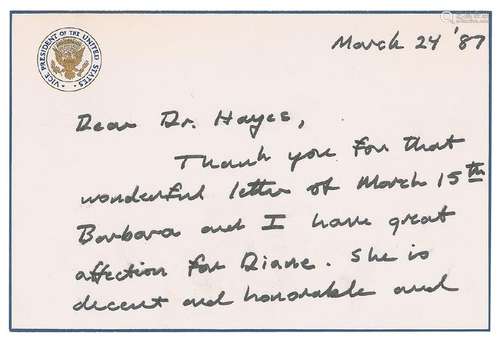 VICE PRESIDENT OF THE UNITED STATES
March 24 '87
Dear Dr. Hayes,
Thank you for that
wonderful letter of March 15th
Barbara and I have great
affection for Diane. She is
decent and honorable and